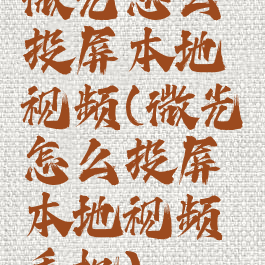 微光怎么
投屏本地
视频(微光
怎么投屏
本地视频
手机)